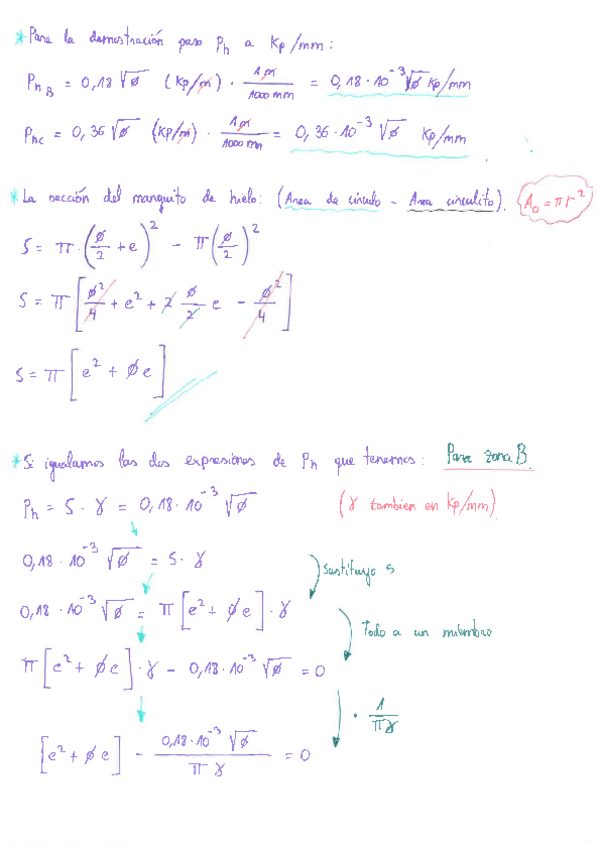 * Para la demostración paso Ph a Kp/mm:
Ph_B = 0,18 √ø (Kp/m) · 1 m / 1000 mm = 0,18 · 10^-3 √ø Kp/mm
Ph_C = 0,36 √ø (Kp/m) · 1 m / 1000 mm = 0,36 · 10^-3 √ø Kp/mm
* La sección del manguito de hielo: (Area de círculo - Area circulito). A_o = π r^2
S = π · (ø/2 + e)^2 - π (ø/2)^2
S = π [ø^2/4 + e^2 + 2 ø/2 e - ø^2/4]
S = π [e^2 + ø e]
* Si igualamos las dos expresiones de Ph que tenemos: Para zona B.
Ph = S · γ = 0,18 · 10^-3 √ø (γ tambien en Kp/mm)
0,18 · 10^-3 √ø = S · γ
sustituyo S
0,18 · 10^-3 √ø = π [e^2 + ø e] · γ
Todo a un miembro
π [e^2 + ø e] · γ - 0,18 · 10^-3 √ø = 0
· 1/πγ
[e^2 + ø e] - 0,18 · 10^-3 √ø / π γ = 0